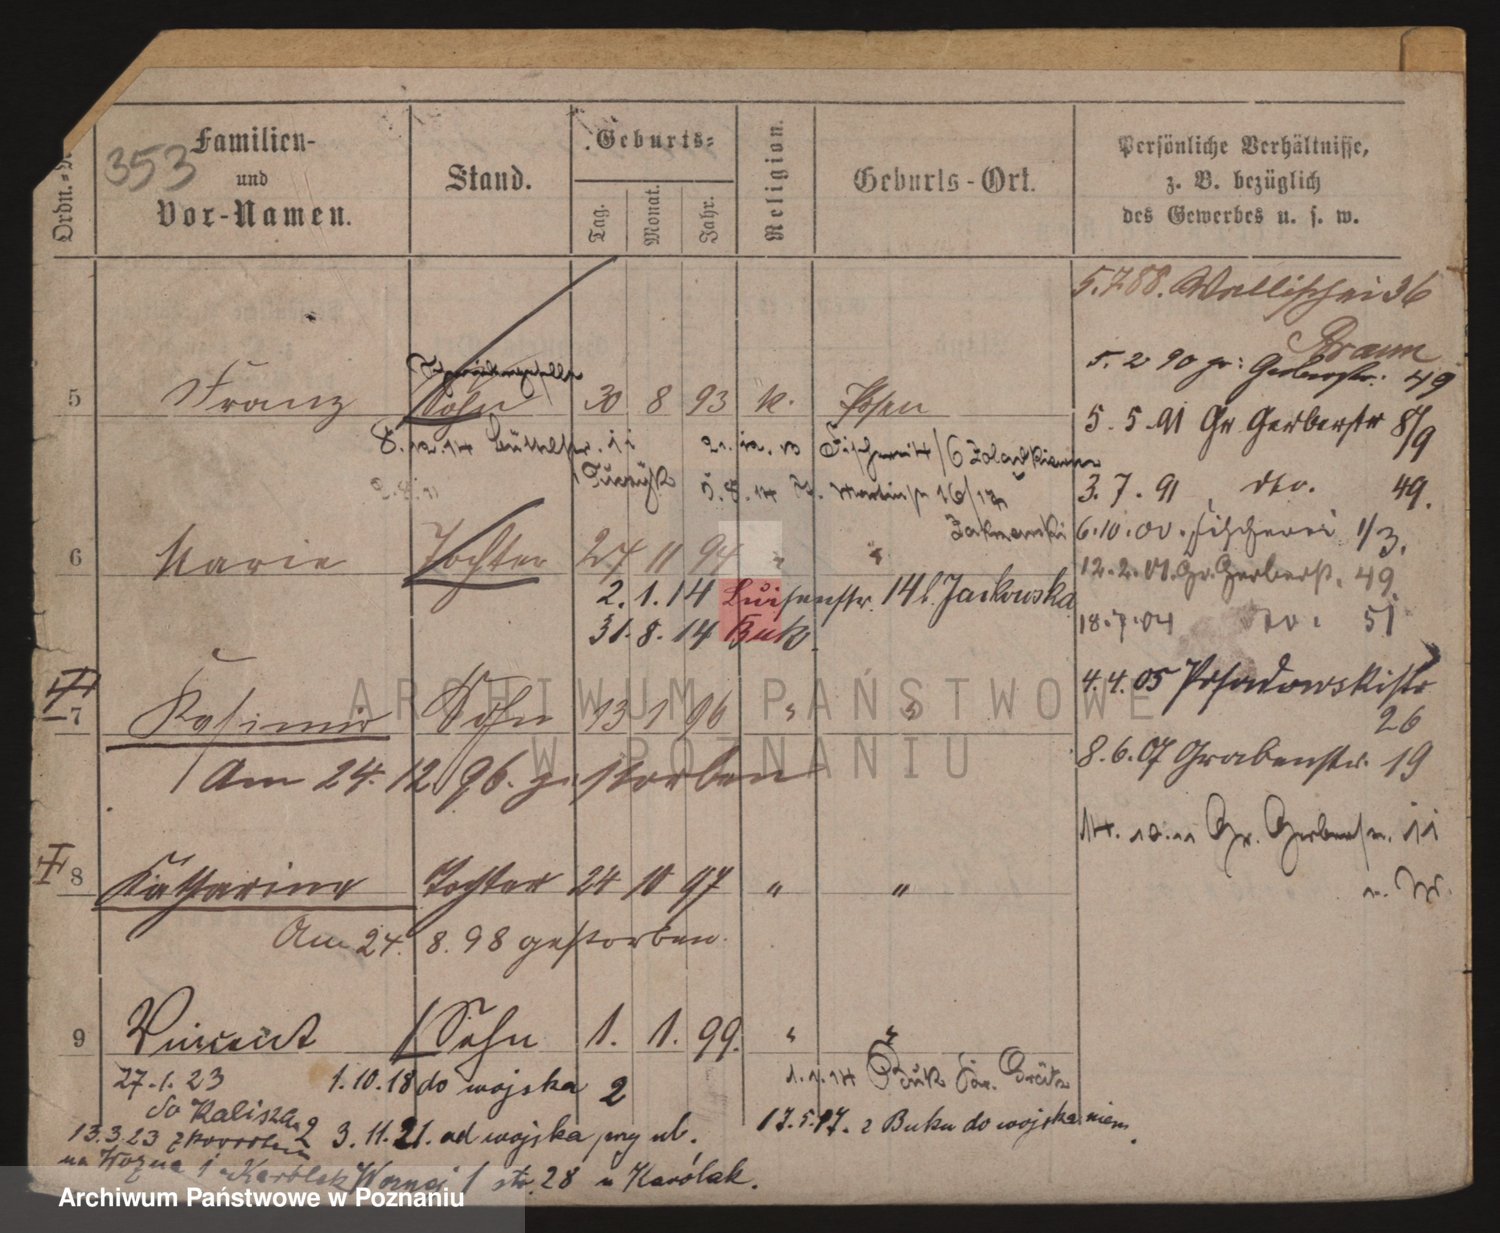 353
Ordn.-N
Familien-
und
Vor-Namen.
Stand.
Geburts-
Tag.
Monat.
Jahr.
Religion.
Geburts-Ort.
Persönliche Verhältnisse,
z. B. bezüglich
des Gewerbes u. s. w.
5.7.88. Wallischei 36
Braun
5. 2 90 gr: Gerberstr. 49
5 Franz Sohn 30 8 93 k. Posen
5. 5. 91 Gr Gerberstr 8/9
8.12.14 Büttelstr. 11
3. 7. 91 dto. 49.
6 Marie Tochter 27 11 94 " "
6.10.00. Fischerei 1/3.
12.2.01. Gr. Gerberstr. 49.
2. 1. 14 Luisenstr. 14 b. Jackowska
31. 8. 14 Buk.
18.7.04 dto. 51
4.4.05 Posadowskistr
26
7 Kasimir Sohn 13 1 96 " "
Am 24. 12. 96. gestorben
8.6.07 Grabenstr. 19
14. 10. 11 Gr. Gerberstr. 11
8 Katharina Tochter 24 10 97 " "
Am 24. 8. 98 gestorben.
9 Vincent Sohn 1. 1. 99. " "
27.1.23 1.10.18 do wojska 2
1.1.14 Buk
do Kalisza
17.5.17. z Buku do wojska niem.
13.3.23 2 3.11.21. od wojska przy ul.
na Wozna Woznej 1 str. 28 u Karólak.
ARCHIWUM PAŃSTWOWE
W POZNANIU
Archiwum Państwowe w Poznaniu